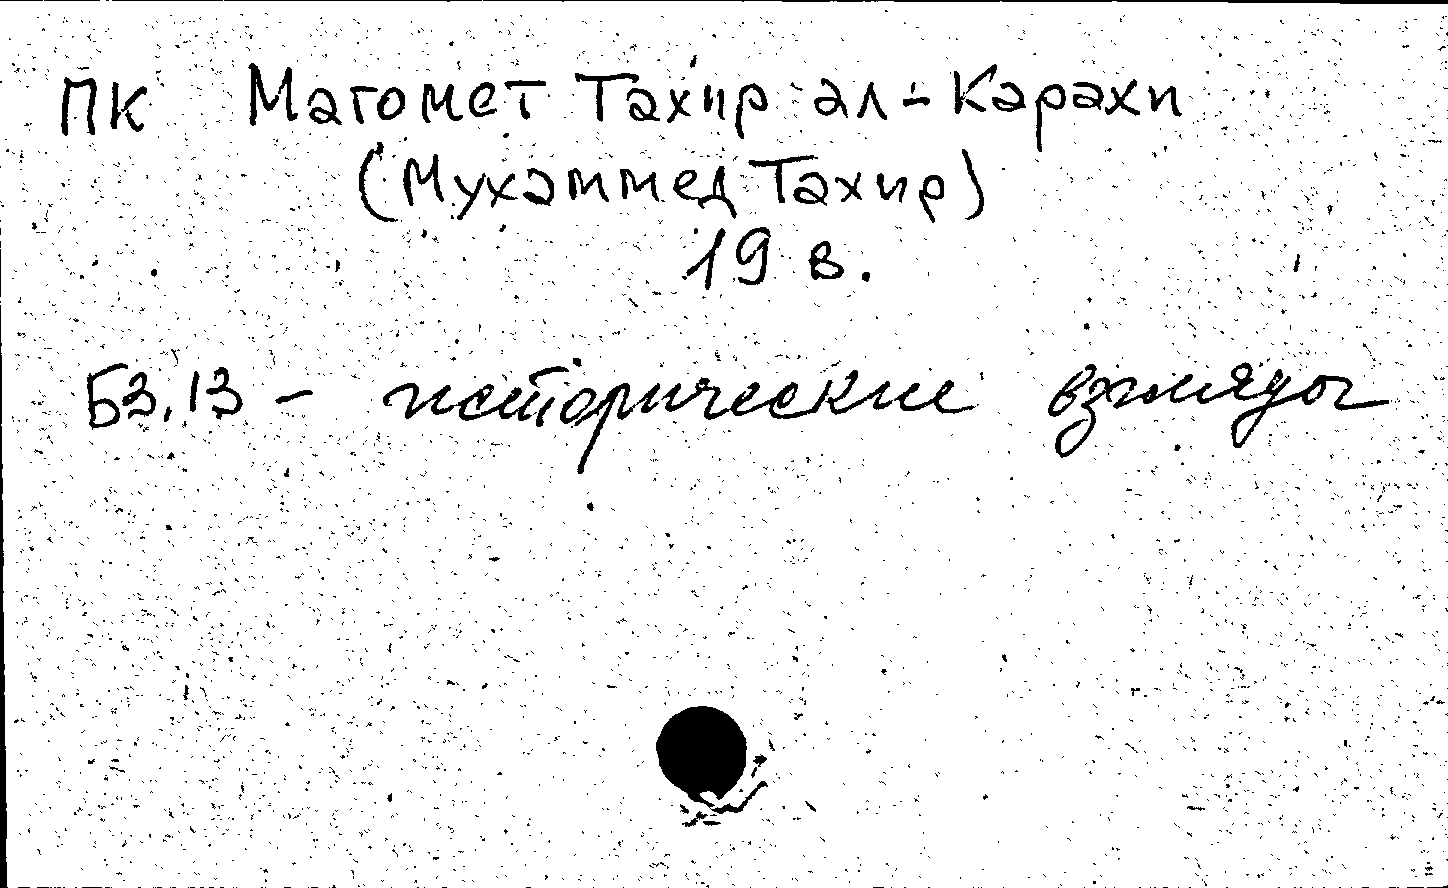 ПК Магомет Тахир ал-Карахи
(Мухаммед Тахир)
19 в.
Б3.13 - исторические взгляды